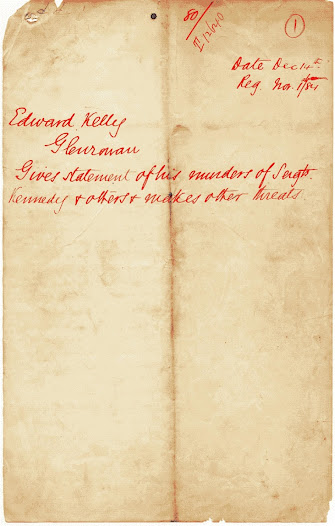 80/
1
Date Dec 14th
Reg. No.
Edward Kelly
Glenrowan
Gives statement of his murders of Sergt.
Kennedy & others & makes other threats.